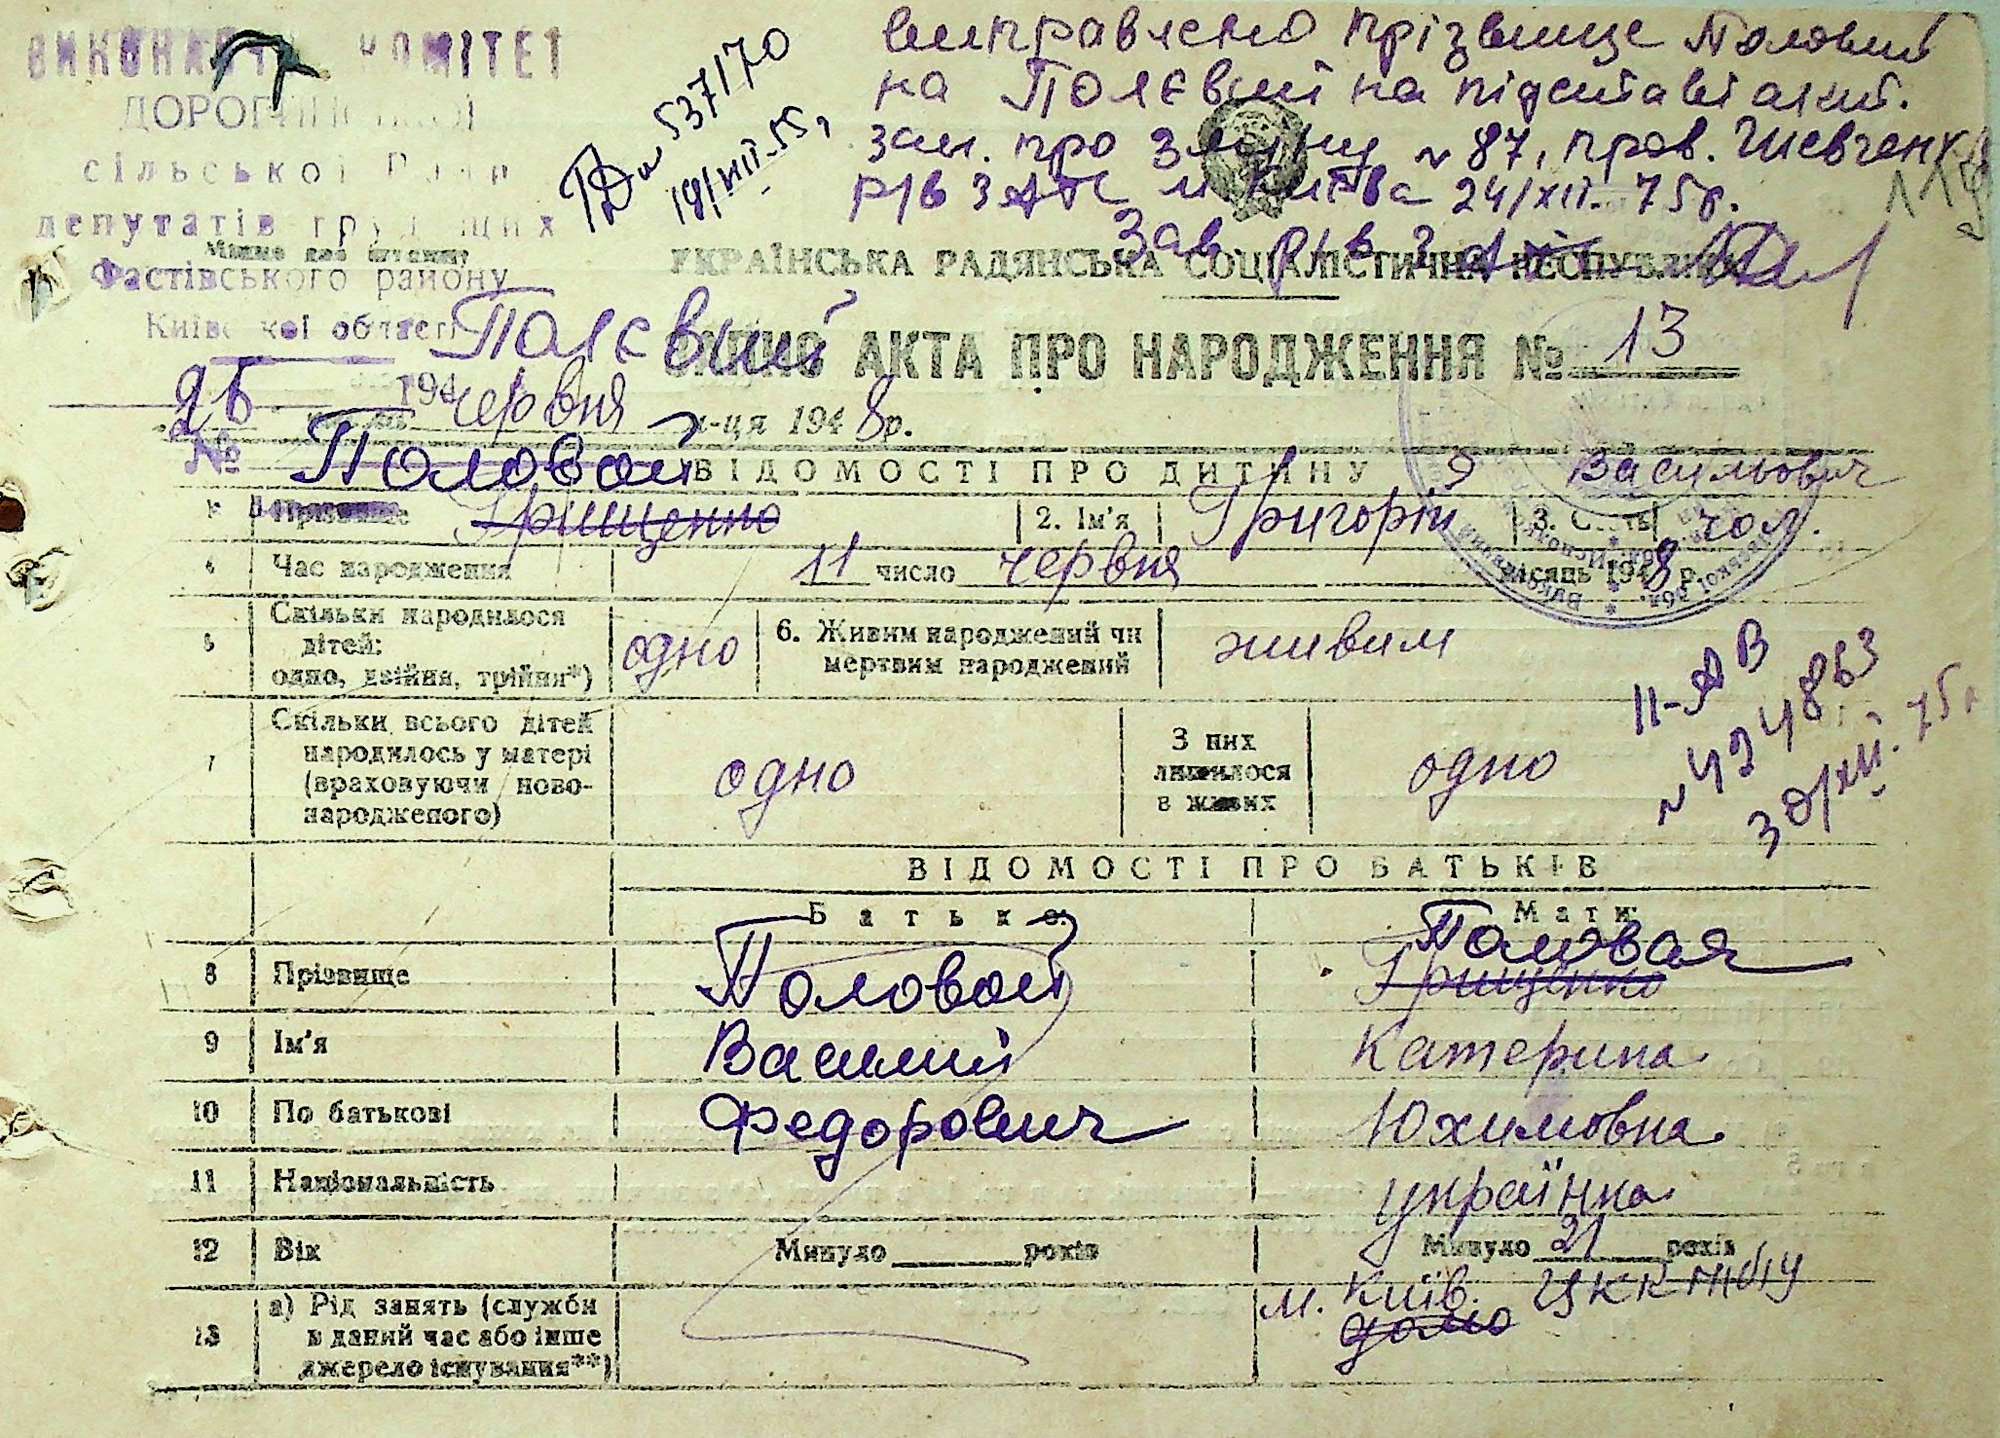 виправлено прізвище Половий
на Полєвий на підставі акт.
зап. про зміну № 87, пров. Шевченк
р/в ЗАГС м. Києва 24/XII-75р.
Зав. р/в ЗАГС
№ 537170
19/VII-55р
ВИКОНАВЧ КОМІТЕТ
ДОРОГИНСЬКОЇ
сільської Ради
депутатів трудящих
Місце для штампу
Фастівського району
Київської області
УКРАЇНСЬКА РАДЯНСЬКА СОЦІАЛІСТИЧНА РЕСПУБЛІКА
Полєвий
ЗАПИС АКТА ПРО НАРОДЖЕННЯ № 13
194
26 червня м-ця 1948 р.
№
Половой
ВІДОМОСТІ ПРО ДИТИНУ
Васильович
1 Прізвище Грищенко 2. Ім'я Григорій 3. Стать чол.
4 Час народження 11 число червня місяць 1948 р.
5 Скільки народилося дітей: одно, двійня, трійня*) одно 6. Живим народжений чи мертвим народжений живим
II-АВ
№ 424863
30/XII-75р
7 Скільки всього дітей народилось у матері (враховуючи новонародженого) одно З них лишилося в живих одно
ВІДОМОСТІ ПРО БАТЬКІВ
Батько: Мати:
Половая
8 Прізвище Половой Грищенко
9 Ім'я Василий Катерина
10 По батькові Федорович Юхимовна
11 Національність українка
12 Вік Минуло ____ років Минуло 21 років
13 а) Рід занять (служби в даний час або інше джерело існування**) м. Київ.
домо